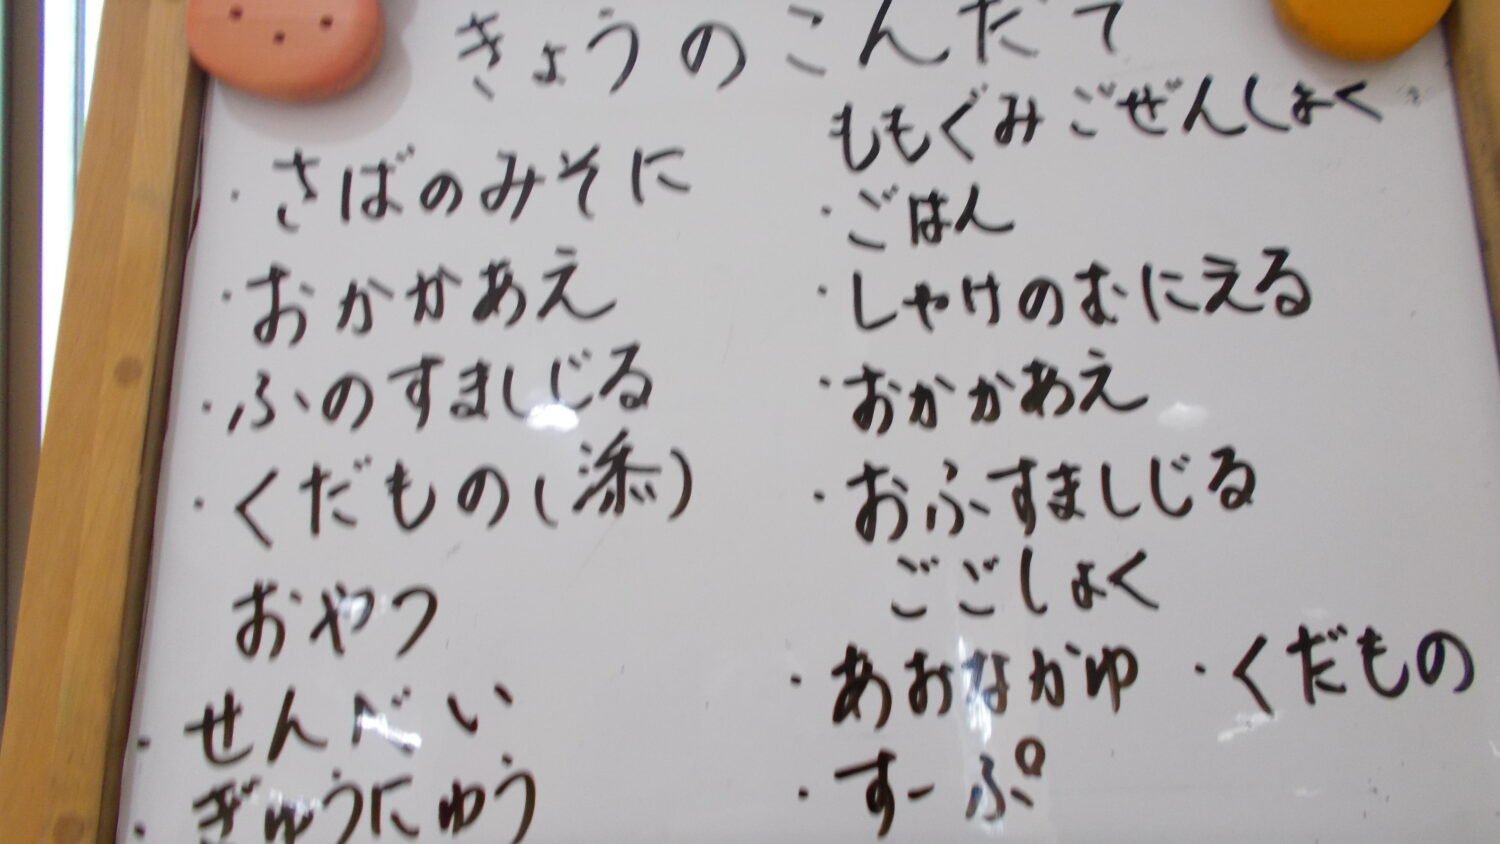 きょうのこんだて
・さばのみそに
・おかかあえ
・ふのすましじる
・くだもの(添)
おやつ
・せんべい
・ぎゅうにゅう
ももぐみ ごぜんしょく
・ごはん
・しゃけのむにえる
・おかかあえ
・おふすましじる
ごごしょく
・あおなかゆ ・くだもの
・すーぷ